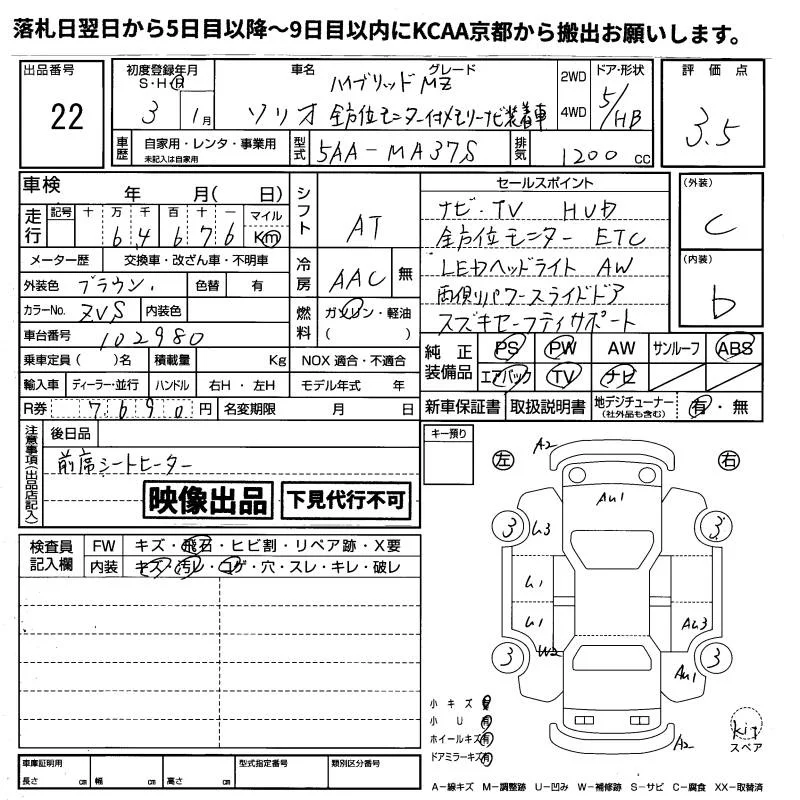 落札日翌日から5日目以降～9日目以内にKCAA京都から搬出お願いします。
出品番号 22
初度登録年月 S・H・R 3 1月
車名 グレード ソリオ ハイブリッドMZ
全方位モニター付メモリーナビ装着車
2WD 4WD
ドア・形状 5/HB
評価点 3.5
車歴 自家用・レンタ・事業用 未記入は自家用
型式 5AA-MA37S
排気 1200 CC
車検 年 月(日)
シフト AT
セールスポイント
ナビ・TV HUD
全方位モニター ETC
LEDヘッドライト AW
両側パワースライドドア
スズキセーフティサポート
(外装) C
(内装) b
走行 記号 十 万 千 百 十 一 マイル Km
6 4 6 7 6
メーター歴 交換車・改ざん車・不明車
冷房 AAC 無
外装色 ブラウン 色替 有
カラーNo. ZVS 内装色
燃料 ガソリン・軽油 ( )
車台番号 102980
乗車定員( )名 積載量 Kg NOX適合・不適合
純正装備品 PS PW AW サンルーフ ABS
エアバック TV ナビ
輸入車 ディーラー・並行 ハンドル 右H・左H モデル年式 年
R券 7690円 名変期限 月 日
新車保証書 取扱説明書 地デジチューナー (社外品も含む) 有・無
注意事項(出品店記入) 後日品
前席シートヒーター
映像出品 下見代行不可
キー預り
左 右
A2
AU1
3 U3 3
U1
U1 AU3
3 W2 AU1 3
A2
検査員記入欄 FW キズ・飛石・ヒビ割・リペア跡・X要
内装 キズ・汚レ・コゲ・穴・スレ・キレ・破レ
小キズ 有
小U 有
ホイールキズ 有
ドアミラーキズ 有
kit スペア
車庫証明用 長さ cm 幅 cm 高さ cm
型式指定番号 類別区分番号
A-線キズ M-調整跡 U-凹み W-補修跡 S-サビ C-腐食 XX-取替済